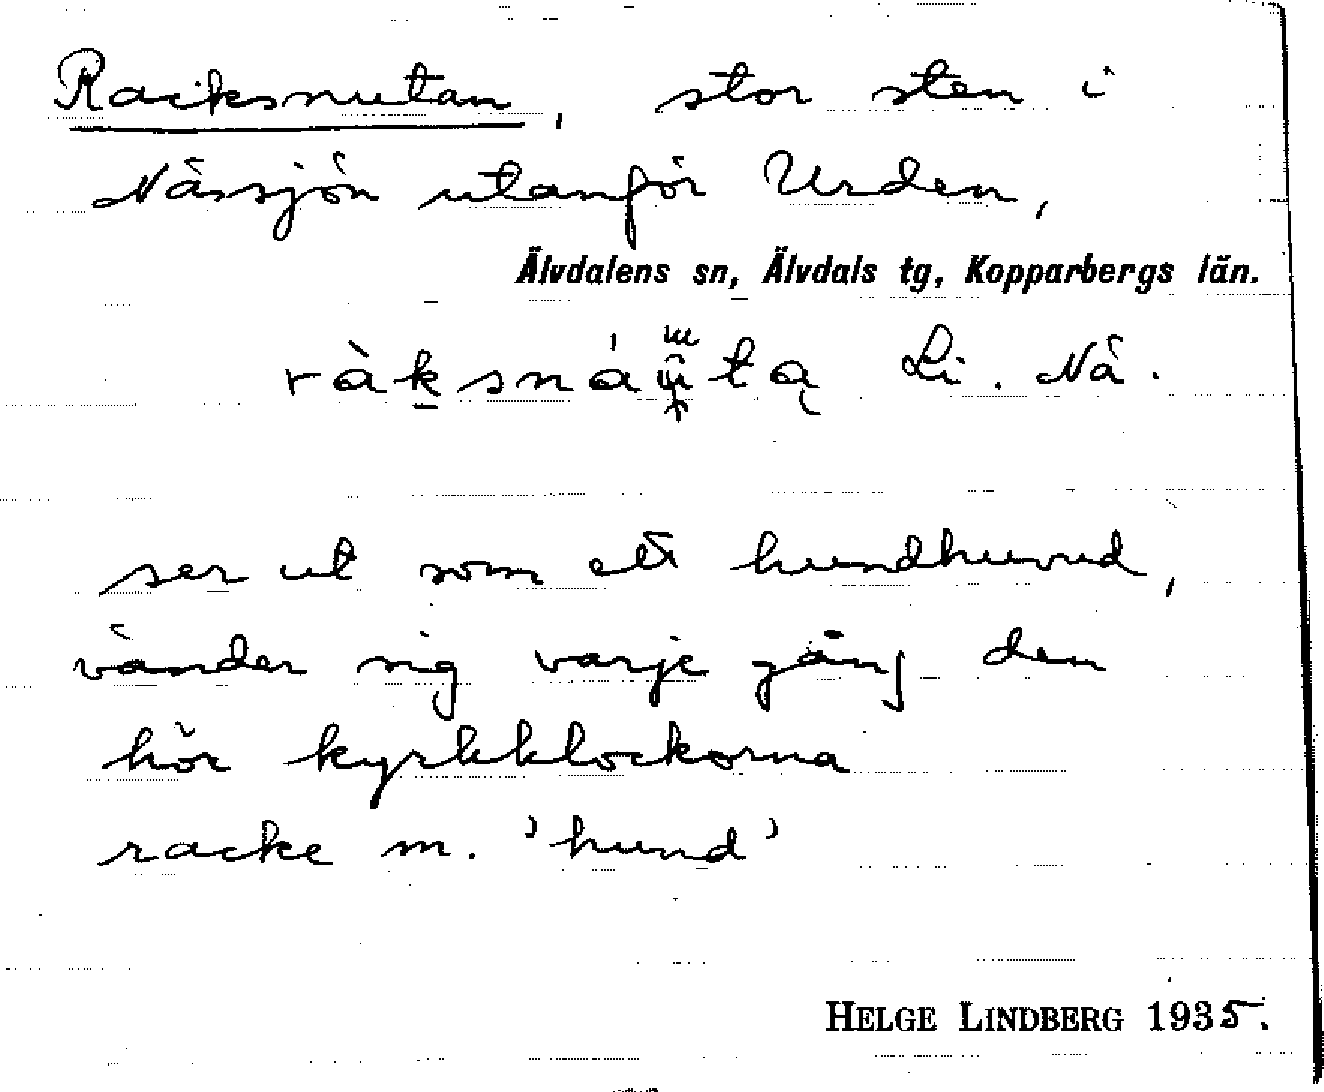 Racksnutan, stor sten i
Nässjön utanför Urden,
Älvdalens sn, Älvdals tg, Kopparbergs län.
Li. Nä.
ser ut som ett hundhuvud,
vänder sig varje gång den
hör kyrkklockorna
racke m. 'hund'
HELGE LINDBERG 1935.